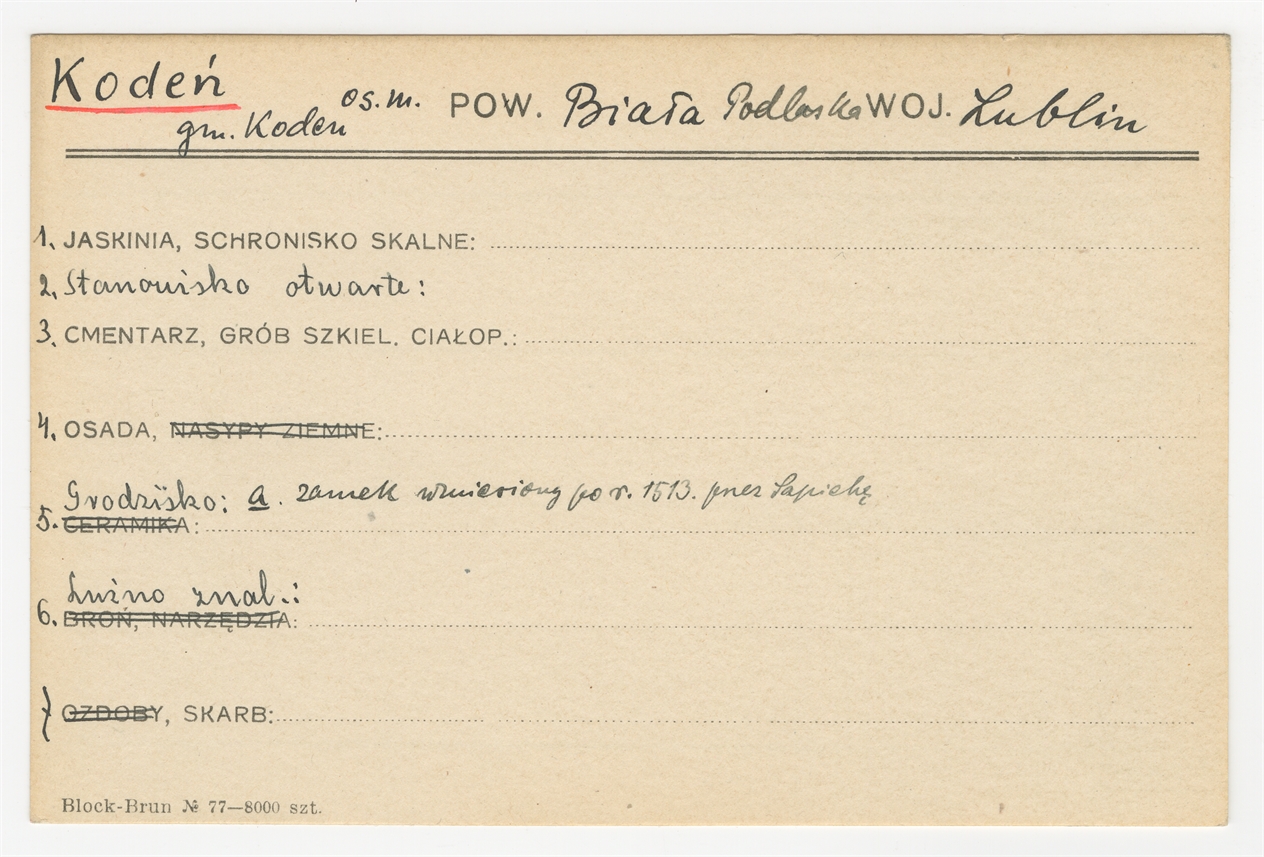 Kodeń os.m. POW. Biała Podlaska WOJ. Lublin
gm. Kodeń
1. JASKINIA, SCHRONISKO SKALNE:
2. Stanowisko otwarte:
3. CMENTARZ, GRÓB SZKIEL. CIAŁOP.:
4. OSADA, NASYPY ZIEMNE:
Grodzisko: a. zamek wzniesiony po r. 1513. przez Sapiehę
5. CERAMIKA:
Luźno znal.:
6. BROŃ, NARZĘDZIA:
7 OZDOBY, SKARB:
Block-Brun № 77—8000 szt.